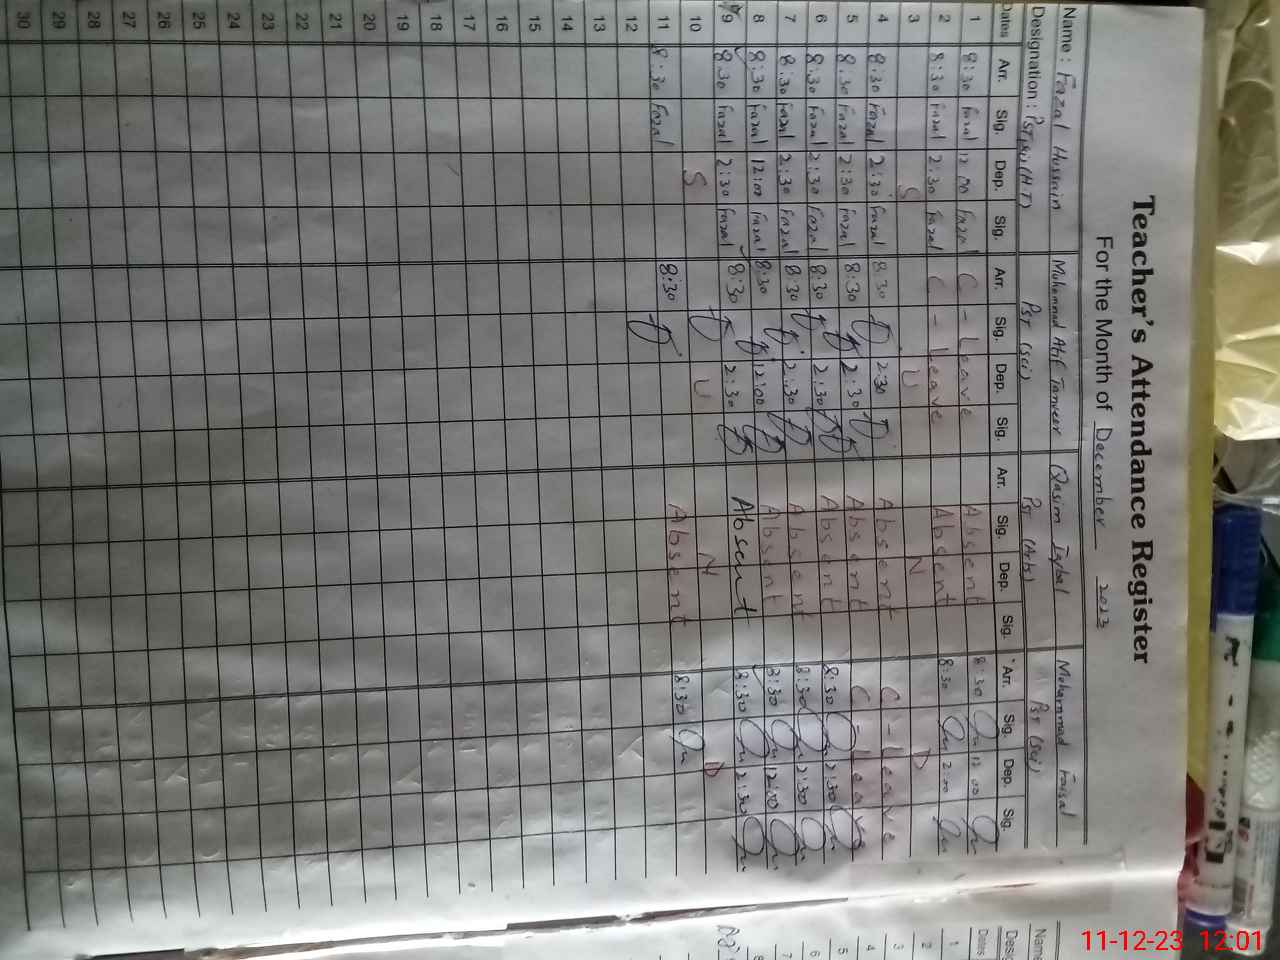 Teacher's Attendance Register
For the Month of December 2023
Name : Fazal Hussain Muhammad Atif Tanveer Qasim Iqbal Mohammad Faisal
Designation : PST (H.T) PST (Sci) PST (Arts) PST (Sci)
Dates Arr. Sig. Dep. Sig. Arr. Sig. Dep. Sig. Arr. Sig. Dep. Sig. Arr. Sig. Dep. Sig.
1 8:30 Fazal 12:00 Fazal C - Leave Absent 8:30 12:00
2 8:30 Fazal 2:30 Fazal C - Leave Absent 8:30 2:00
3 S U N D
4 8:30 Fazal 2:30 Fazal 8:30 2:30 Absent C - Leave
5 8:30 Fazal 2:30 Fazal 8:30 2:30 Absent C - Leave
6 8:30 Fazal 2:30 Fazal 8:30 2:30 Absent 8:30 2:30
7 8:30 Fazal 2:30 Fazal 8:30 2:30 Absent 8:30 2:30
8 8:30 Fazal 12:00 Fazal 8:30 12:00 Absent 8:30 12:00
9 8:30 Fazal 2:30 Fazal 8:30 2:30 Absent 8:30 2:30
10 S U N D
11 8:30 Fazal 8:30 Absent 8:30
12
13
14
15
16
17
18
19
20
21
22
23
24
25
26
27
28
29
30
Name
Desig
Dates
1
2
3
4
5
6
7
8
11-12-23 12:01